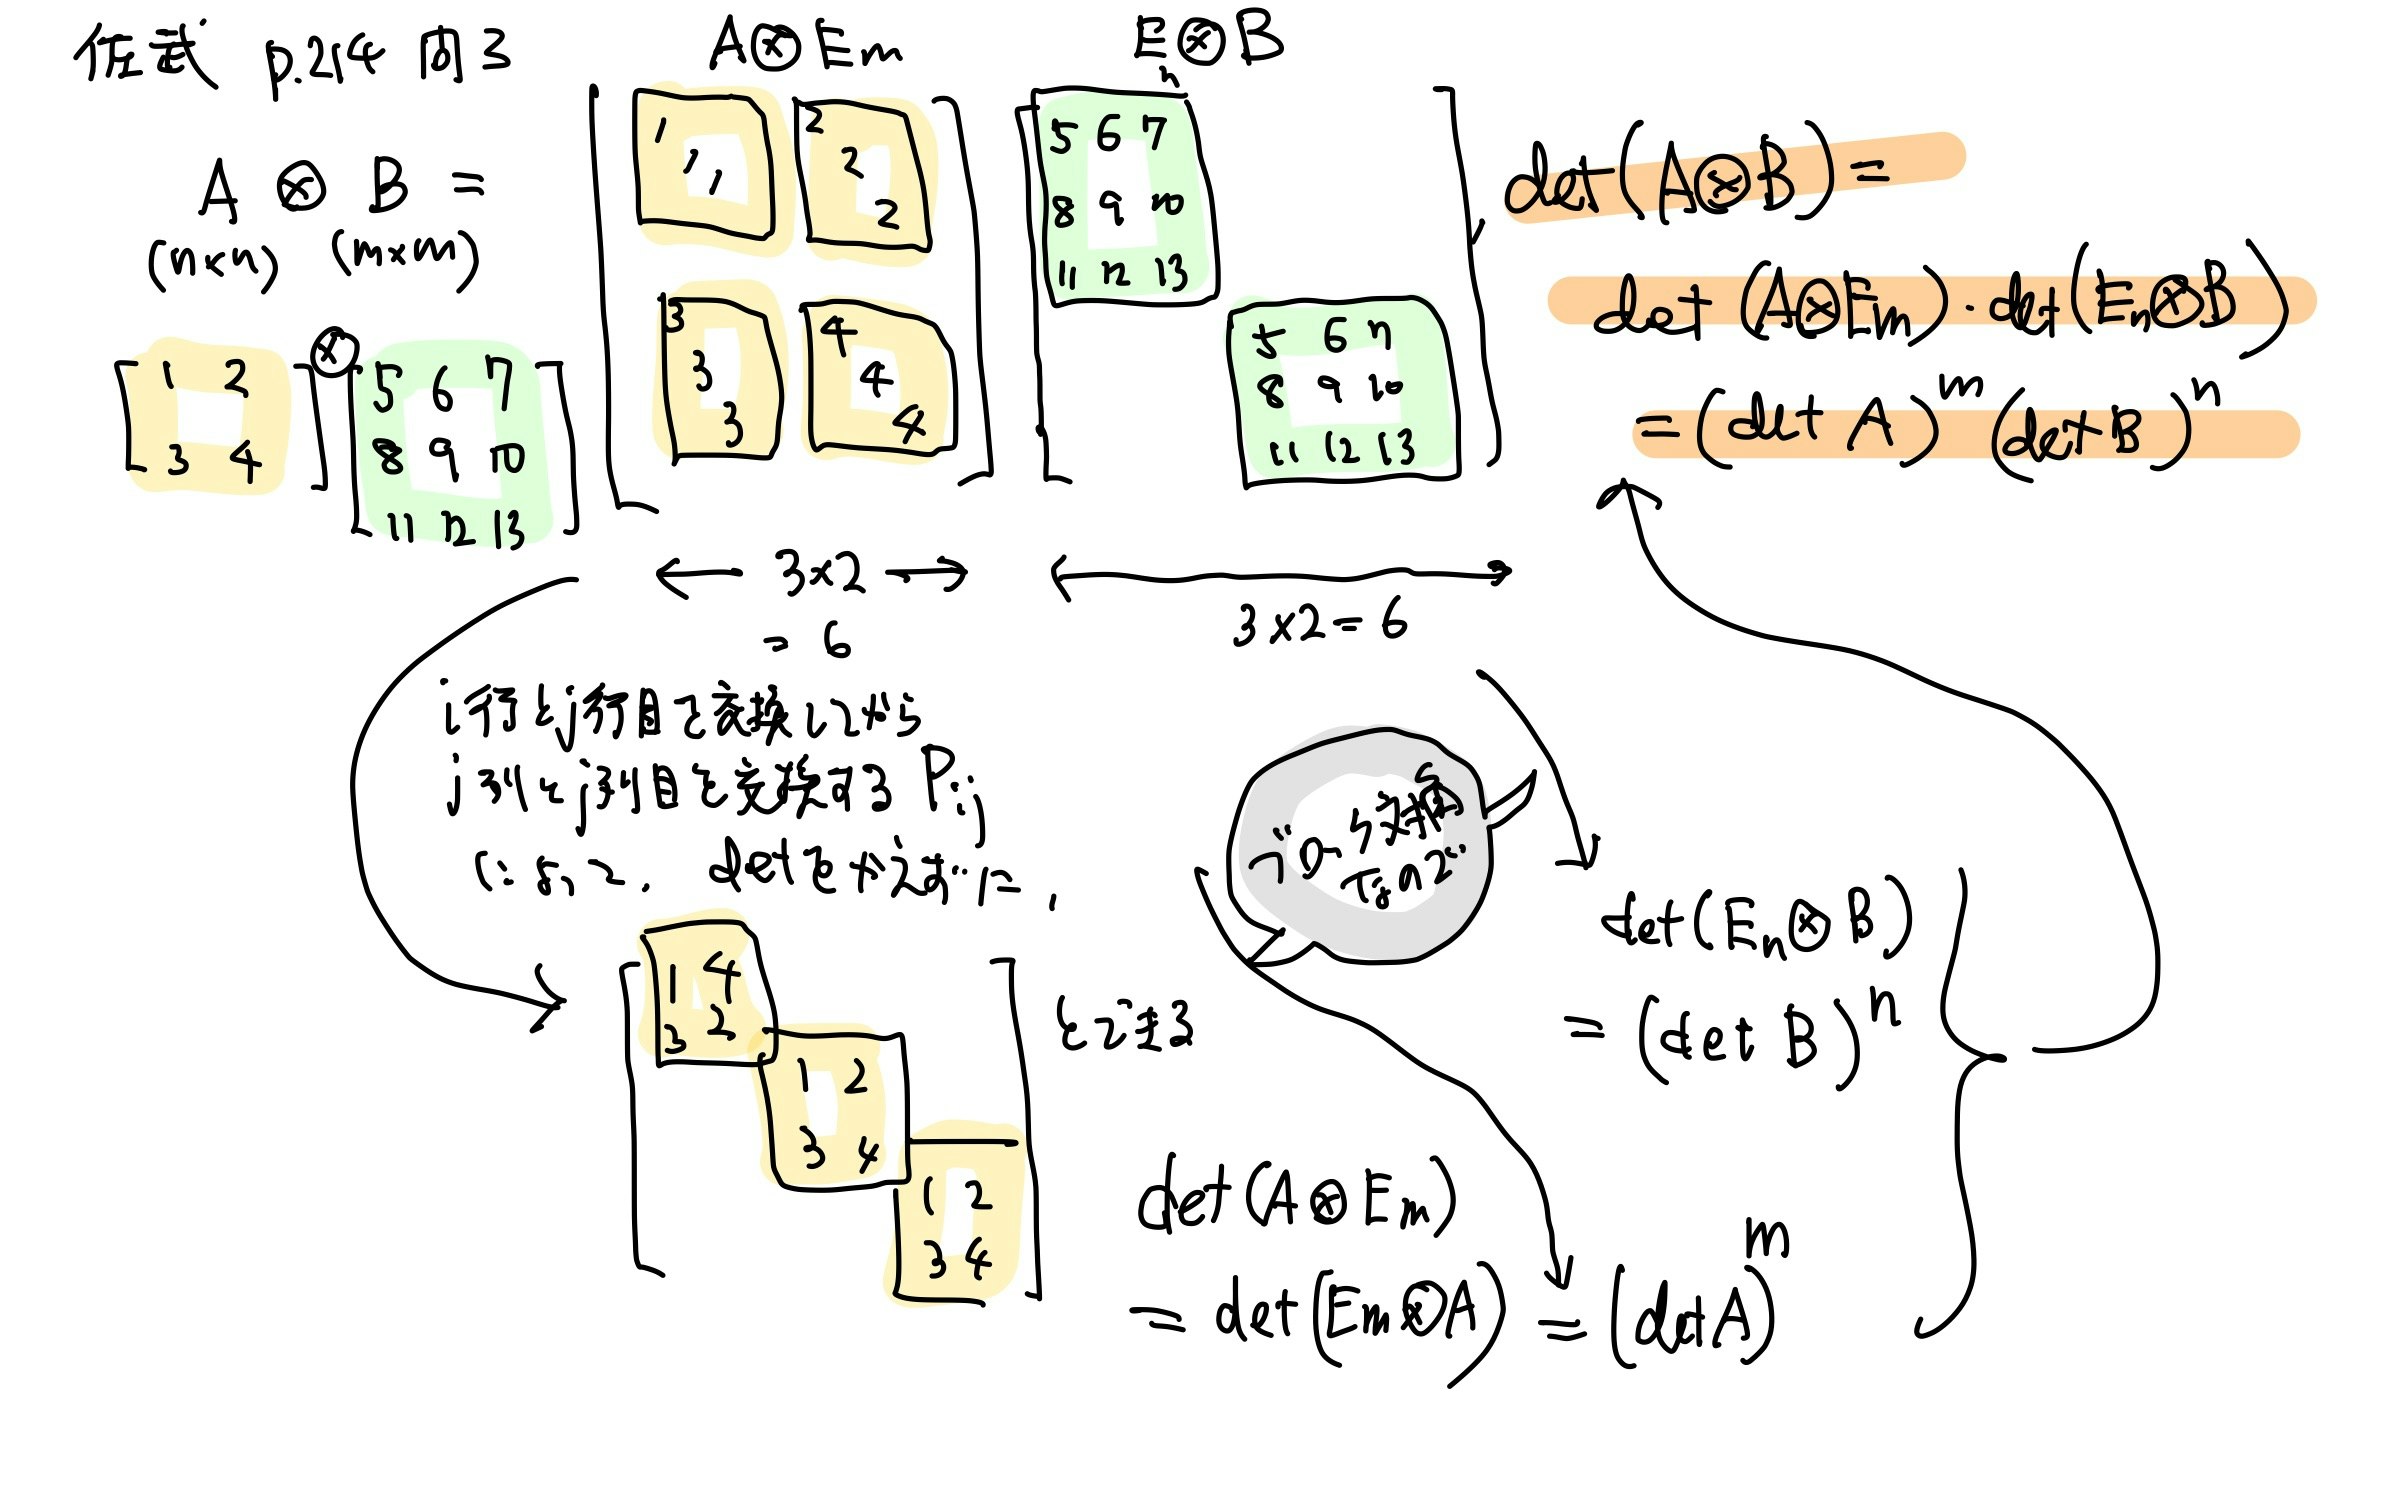 佐武 p.214 問3
A⊗B =
(n×n) (m×m)
[1 2
3 4]
⊗
[5 6 7
8 9 10
11 12 13]
A⊗Em
[1 2
1 2
1 2
3 4
3 4
3 4]
En⊗B
[5 6 7
8 9 10
11 12 13
5 6 7
8 9 10
11 12 13]
3×2
= 6
3×2=6
det(A⊗B) =
det(A⊗Em)・det(En⊗B)
=(det A)^m (det B)^n
i行とj行目を交換してから
j列とj列目を交換する Pij
によって、detを変えずに、
[1 4
3 2
1 2
3 4
1 2
3 4]
とできる
ブロック対角
なので
det(En⊗B)
= (det B)^n
det(A⊗Em)
= det(Em⊗A) = (det A)^m